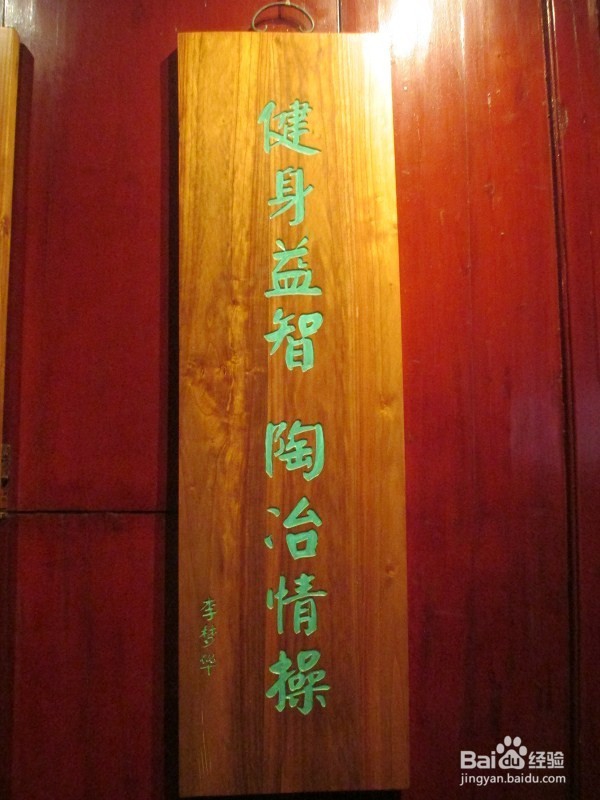 健身益智 陶冶情操
李梦华
Baidu经验
jingyan.baidu.com